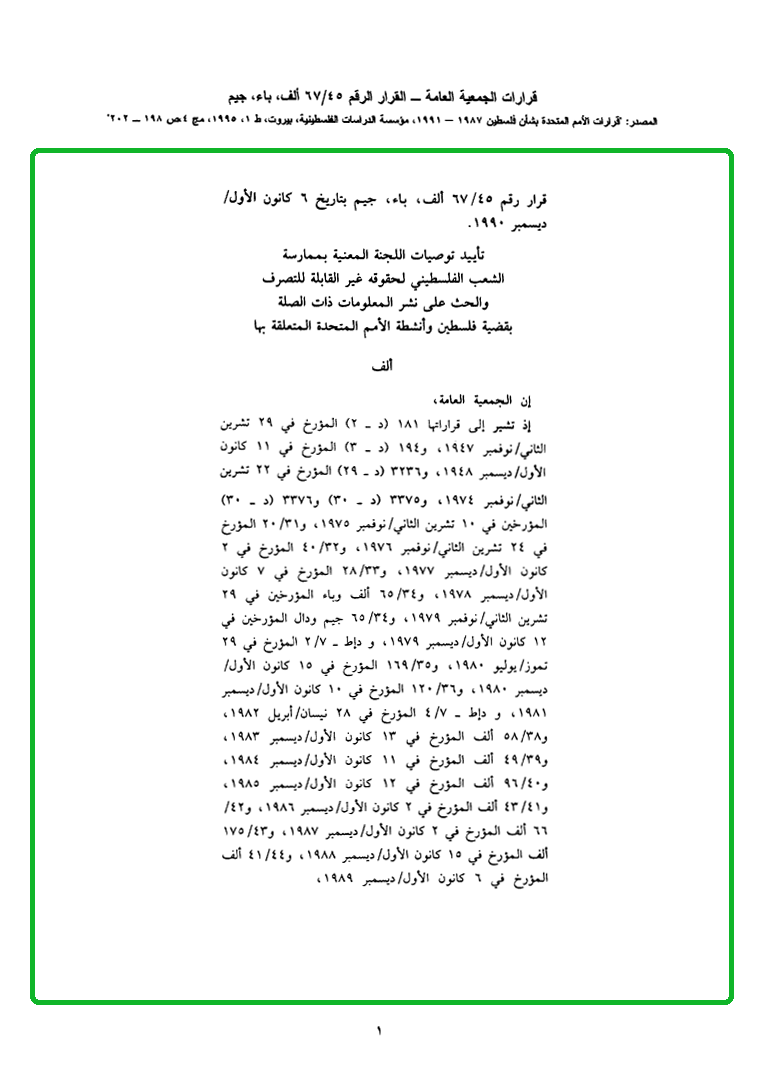 قرارات الجمعية العامة ـــ القرار الرقم ٦٧/٤٥ ألف، باء، جيم
المصدر: "قرارات الأمم المتحدة بشأن فلسطين ١٩٨٧ – ١٩٩١، مؤسسة الدراسات الفلسطينية، بيروت، ط ١، ١٩٩٥، مج ٤ ص ١٩٨ ـــ ٢٠٢"
قرار رقم ٦٧/٤٥ ألف، باء، جيم بتاريخ ٦ كانون الأول/
ديسمبر ١٩٩٠.
تأييد توصيات اللجنة المعنية بممارسة
الشعب الفلسطيني لحقوقه غير القابلة للتصرف
والحث على نشر المعلومات ذات الصلة
بقضية فلسطين وأنشطة الأمم المتحدة المتعلقة بها
ألف
إن الجمعية العامة،
إذ تشير إلى قراراتها ١٨١ (د ـ ٢) المؤرخ في ٢٩ تشرين
الثاني/نوفمبر ١٩٤٧، و١٩٤ (د ـ ٣) المؤرخ في ١١ كانون
الأول/ديسمبر ١٩٤٨، و٣٢٣٦ (د ـ ٢٩) المؤرخ في ٢٢ تشرين
الثاني/نوفمبر ١٩٧٤، و٣٣٧٥ (د ـ ٣٠) و٣٣٧٦ (د ـ ٣٠)
المؤرخين في ١٠ تشرين الثاني/نوفمبر ١٩٧٥، و٢٠/٣١ المؤرخ
في ٢٤ تشرين الثاني/نوفمبر ١٩٧٦، و٤٠/٣٢ المؤرخ في ٢
كانون الأول/ديسمبر ١٩٧٧، و٢٨/٣٣ المؤرخ في ٧ كانون
الأول/ديسمبر ١٩٧٨، و٦٥/٣٤ ألف وباء المؤرخين في ٢٩
تشرين الثاني/نوفمبر ١٩٧٩، و٦٥/٣٤ جيم ودال المؤرخين في
١٢ كانون الأول/ديسمبر ١٩٧٩، و دإط ـ ٢/٧ المؤرخ في ٢٩
تموز/يوليو ١٩٨٠، و١٦٩/٣٥ المؤرخ في ١٥ كانون الأول/
ديسمبر ١٩٨٠، و١٢٠/٣٦ المؤرخ في ١٠ كانون الأول/ديسمبر
١٩٨١، و دإط ـ ٤/٧ المؤرخ في ٢٨ نيسان/أبريل ١٩٨٢،
و٥٨/٣٨ ألف المؤرخ في ١٣ كانون الأول/ديسمبر ١٩٨٣،
و٤٩/٣٩ ألف المؤرخ في ١١ كانون الأول/ديسمبر ١٩٨٤،
و٩٦/٤٠ ألف المؤرخ في ١٢ كانون الأول/ديسمبر ١٩٨٥،
و٤٣/٤١ ألف المؤرخ في ٢ كانون الأول/ديسمبر ١٩٨٦، و٤٢/
٦٦ ألف المؤرخ في ٢ كانون الأول/ديسمبر ١٩٨٧، و١٧٥/٤٣
ألف المؤرخ في ١٥ كانون الأول/ديسمبر ١٩٨٨، و٤١/٤٤ ألف
المؤرخ في ٦ كانون الأول/ديسمبر ١٩٨٩،
١